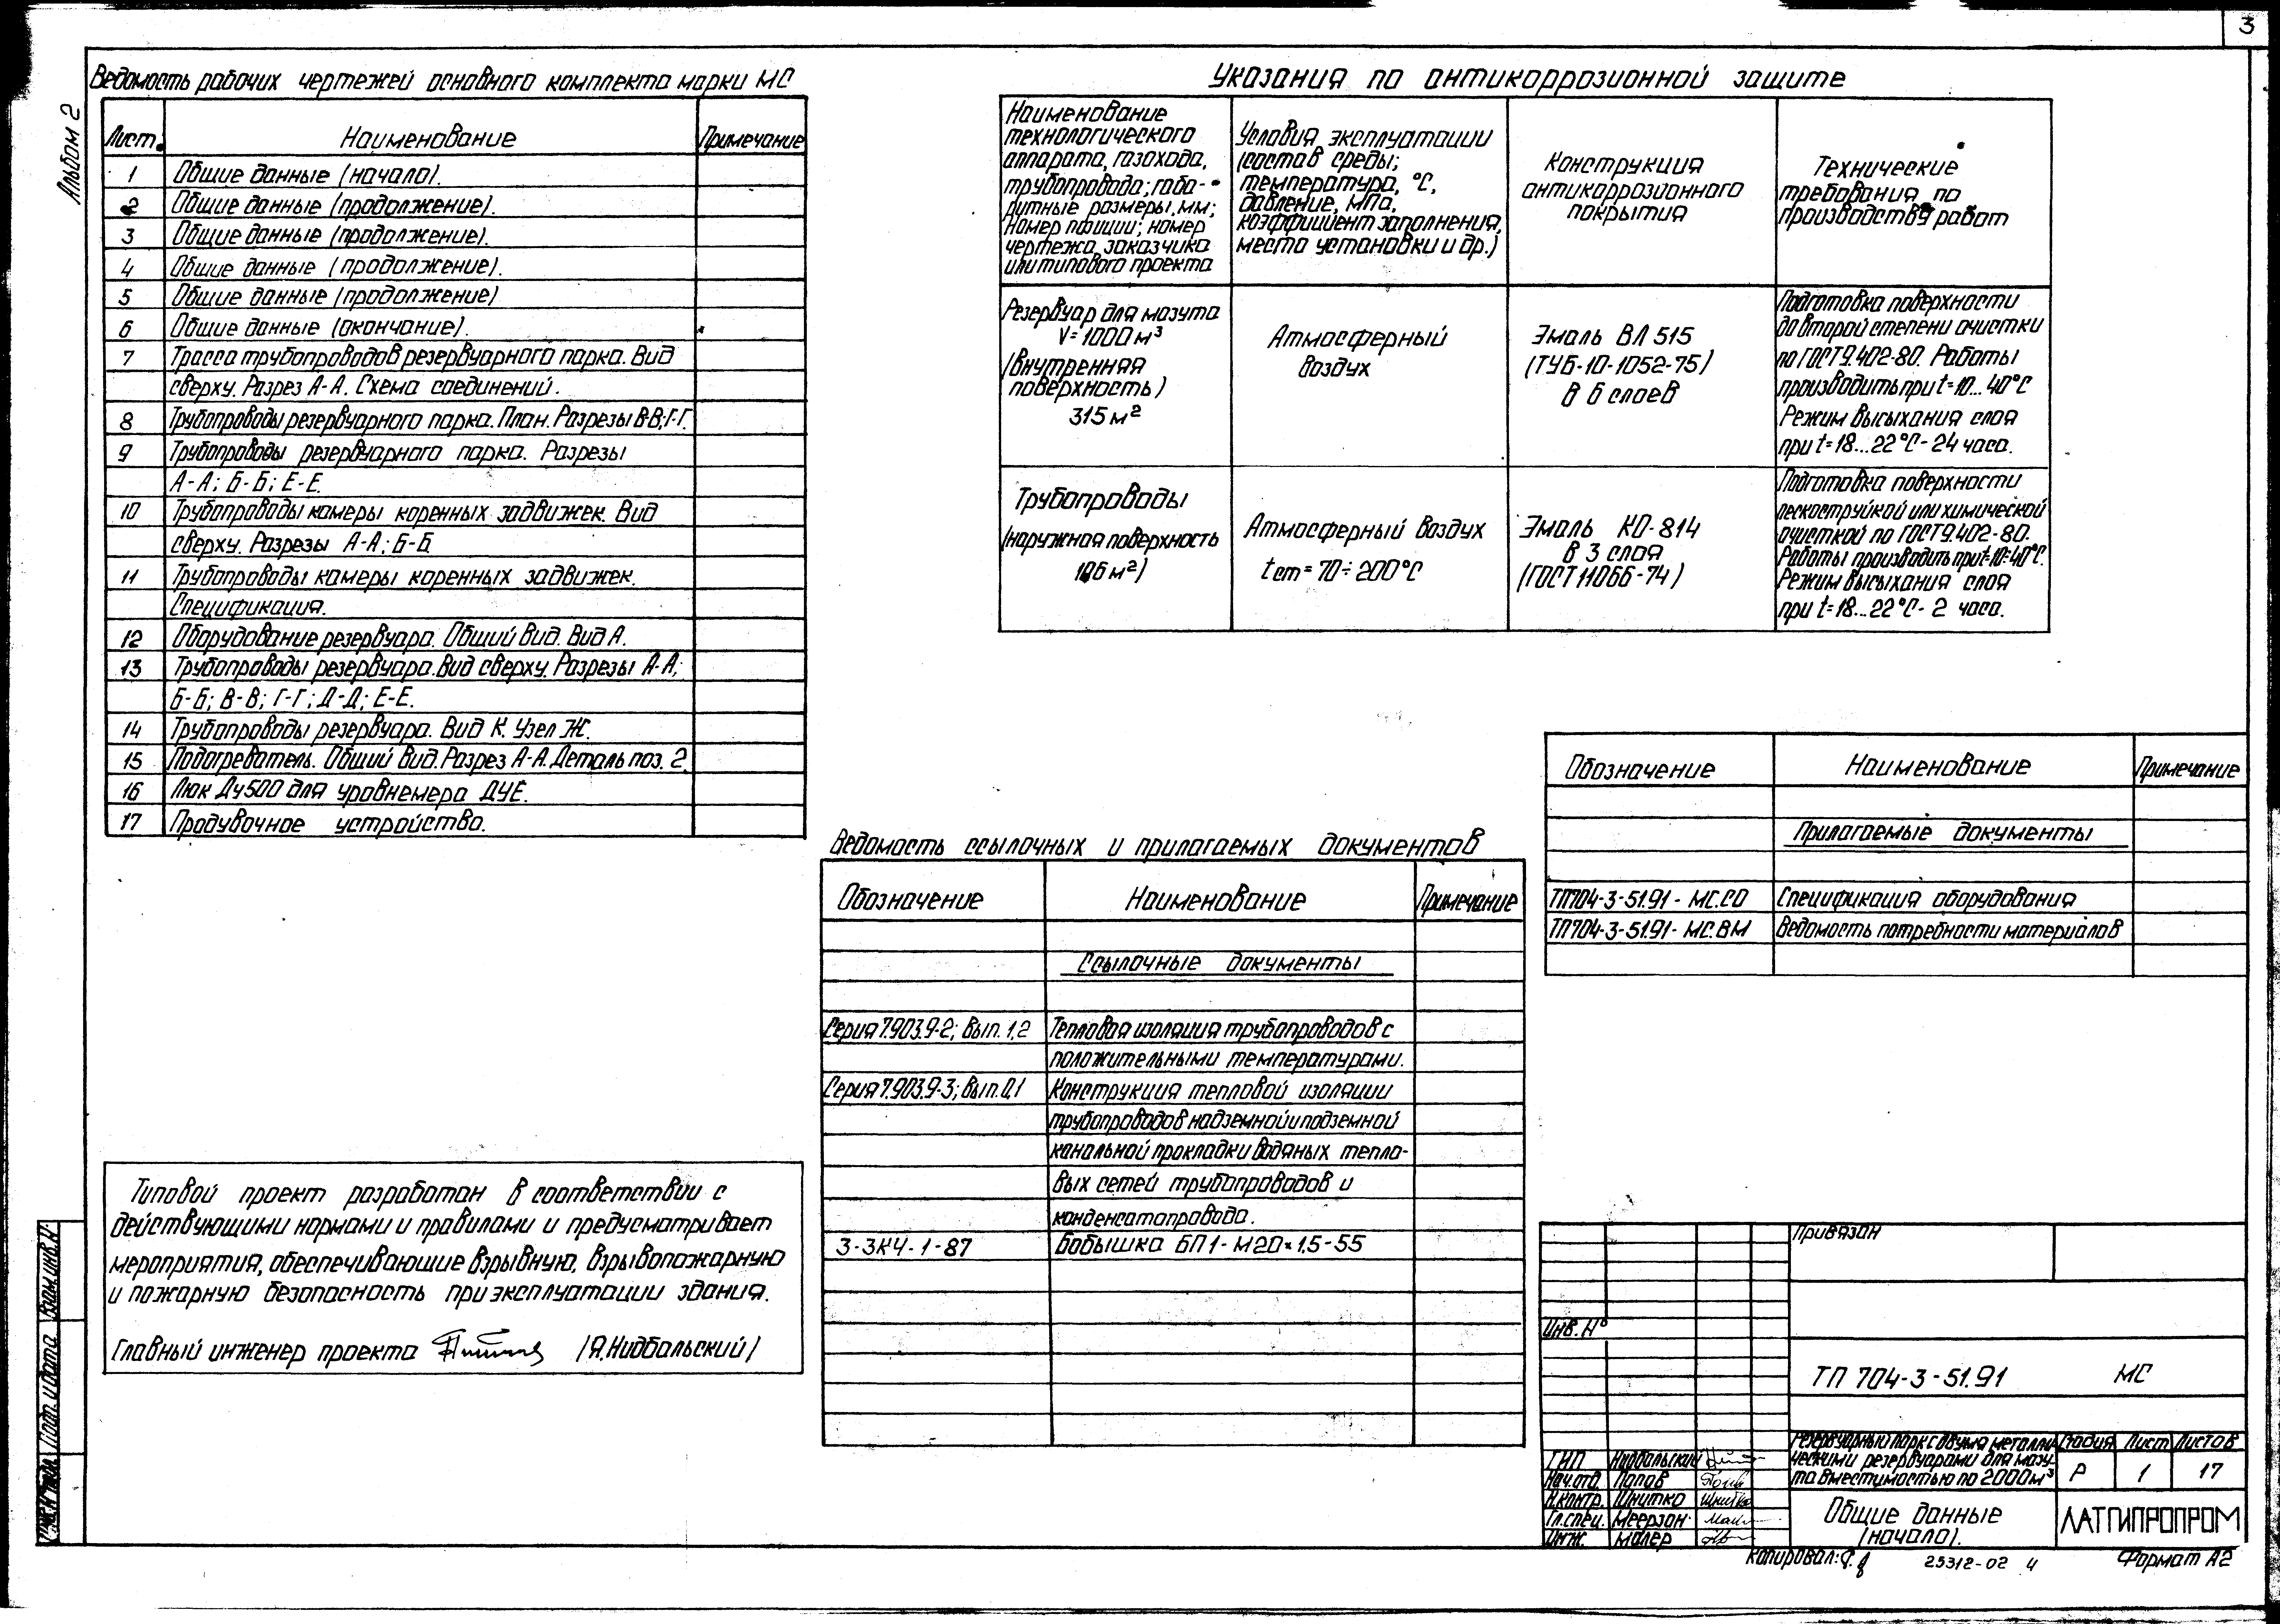 3
Альбом 2
Ведомость рабочих чертежей основного комплекта марки МС
Лист. Наименование Примечание
1 Общие данные (начало).
2 Общие данные (продолжение).
3 Общие данные (продолжение).
4 Общие данные (продолжение).
5 Общие данные (продолжение)
6 Общие данные (окончание).
7 Трасса трубопроводов резервуарного парка. Вид
сверху. Разрез А-А. Схема соединений.
8 Трубопроводы резервуарного парка. План. Разрезы В-В; Г-Г.
9 Трубопроводы резервуарного парка. Разрезы
А-А; Б-Б; Е-Е.
10 Трубопроводы камеры коренных задвижек. Вид
сверху. Разрезы А-А; Б-Б
11 Трубопроводы камеры коренных задвижек.
Спецификация.
12 Оборудование резервуара. Общий вид. Вид А.
13 Трубопроводы резервуара. Вид сверху. Разрезы А-А;
Б-Б; В-В; Г-Г; Д-Д; Е-Е.
14 Трубопроводы резервуара. Вид К. Узел Ж.
15 Подогреватель. Общий вид. Разрез А-А. Деталь поз. 2.
16 Люк Ду500 для уровнемера ДУЕ.
17 Продувочное устройство.
Типовой проект разработан в соответствии с
действующими нормами и правилами и предусматривает
мероприятия, обеспечивающие взрывную, взрывопожарную
и пожарную безопасность при эксплуатации здания.
Главный инженер проекта (Я.Нидбальский)
Указания по антикоррозионной защите
Наименование
технологического
аппарата, газохода,
трубопровода; габа-
ритные размеры, мм;
номер позиции; номер
чертежа заказчика
или типового проекта
Условия эксплуатации
(состав среды;
температура, °С,
давление, МПа,
коэффициент заполнения,
место установки и др.)
Конструкция
антикоррозионного
покрытия
Технические
требования по
производству работ
Резервуар для мазута
V=1000 м³
(внутренняя
поверхность)
315 м²
Атмосферный
воздух
Эмаль ВЛ 515
(ТУ6-10-1052-75)
в 6 слоев
Подготовка поверхности
до второй степени очистки
по ГОСТ 9.402-80. Работы
производить при t=10...40°С
Режим высыхания слоя
при t=18...22°С-24 часа.
Трубопроводы
(наружная поверхность
106 м²)
Атмосферный воздух
t ст = 70÷200°С
Эмаль КО-814
в 3 слоя
(ГОСТ 11066-74)
Подготовка поверхности
пескоструйкой или химической
очисткой по ГОСТ 9.402-80.
Работы производить при t=10÷40°С.
Режим высыхания слоя
при t=18...22°С- 2 часа.
Ведомость ссылочных и прилагаемых документов
Обозначение Наименование Примечание
Ссылочные документы
Серия 7.903.9-2; Вып. 1,2 Тепловая изоляция трубопроводов с
положительными температурами.
Серия 7.903.9-3; Вып. 0,1 Конструкция тепловой изоляции
трубопроводов надземной и подземной
канальной прокладки водяных тепло-
вых сетей трубопроводов и
конденсатопровода.
3-ЗКЧ-1-87 Бобышка БП1-М20×1,5-55
Обозначение Наименование Примечание
Прилагаемые документы
ТП704-3-51.91 - МС.СО Спецификация оборудования
ТП704-3-51.91- МС.ВМ Ведомость потребности материалов
Привязан
Инв. №
ТП 704-3-51.91 МС
Резервуарный парк с двумя металли-
ческими резервуарами для мазу-
та вместимостью по 2000 м³
Стадия Лист Листов
Р 1 17
ГИП Нидбальский
Нач.отд. Попов
Н.контр. Шнитко
Гл.спец. Меерзон
Инж. Малер
Общие данные
(начало).
ЛАТГИПРОПРОМ
Копировал:
25312-02 4
Формат А2
Взам. инв. №
Подп. и дата